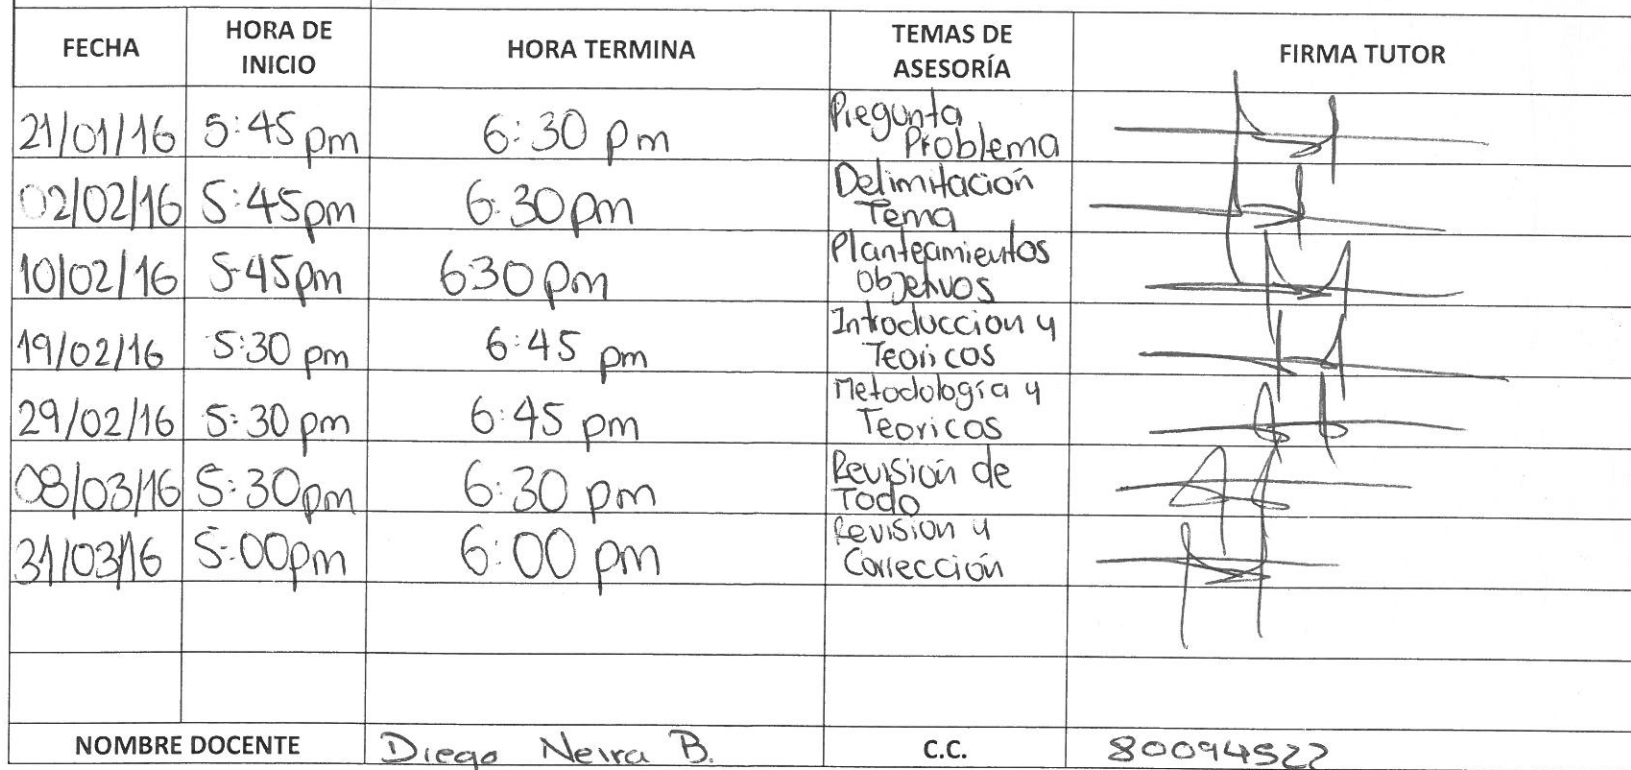 FECHA HORA DE INICIO HORA TERMINA TEMAS DE ASESORÍA FIRMA TUTOR
21/01/16 5:45 pm 6:30 pm Pregunta Problema
02/02/16 5:45pm 6:30pm Delimitación Tema
10/02/16 5:45pm 630pm Planteamientos Objetivos
19/02/16 5:30 pm 6:45 pm Introduccion y Teoricos
29/02/16 5:30 pm 6:45 pm Metodología y Teoricos
08/03/16 5:30pm 6:30 pm Revisión de Todo
31/03/16 5:00pm 6:00 pm Revision y Corrección
NOMBRE DOCENTE Diego Neira B. C.C. 80094522